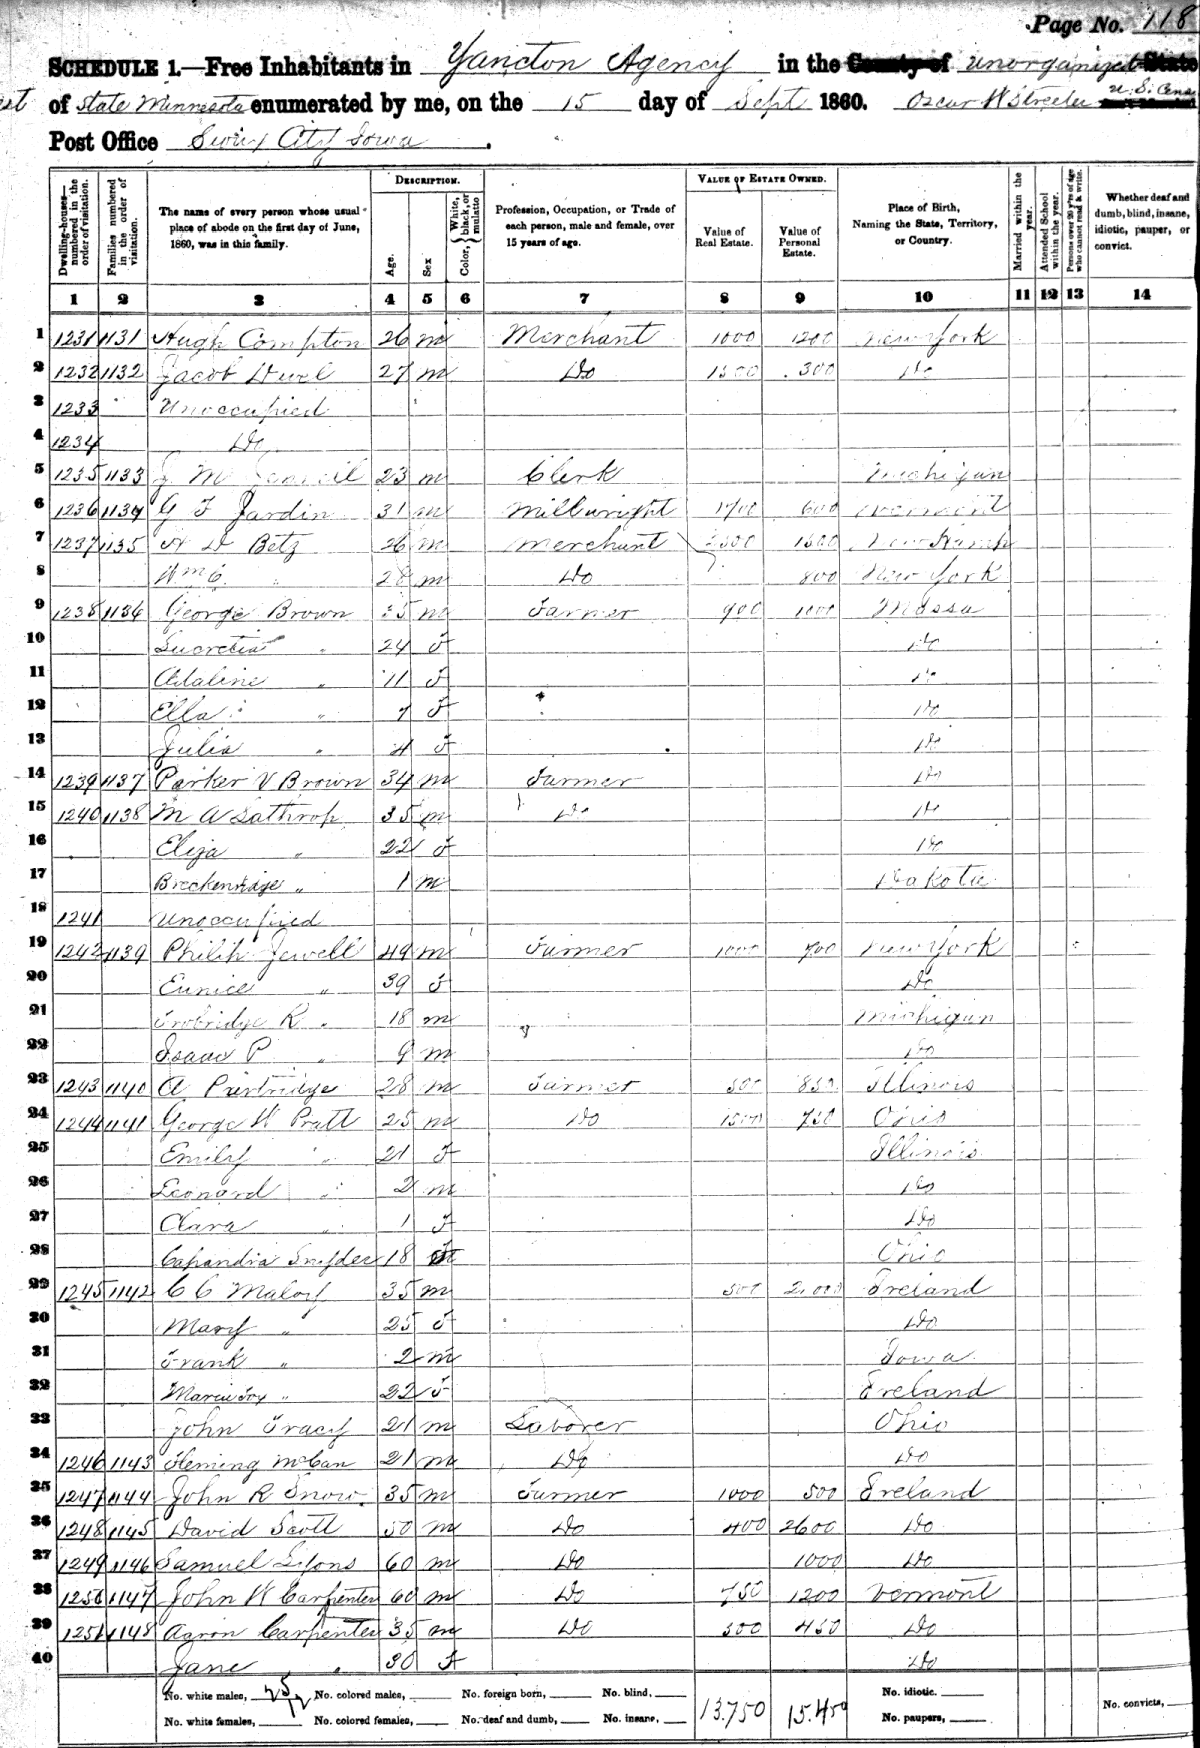 Page No. 118
SCHEDULE 1.—Free Inhabitants in Yancton Agency in the County of unorganized State
est of State Minnesota enumerated by me, on the 15 day of Sept 1860. Oscar W Streeter U.S. Cens
Post Office Sioux City Iowa.
Dwelling-houses—numbered in the order of visitation.
Families numbered in the order of visitation.
The name of every person whose usual place of abode on the first day of June, 1860, was in this family.
DESCRIPTION.
Age.
Sex
Color, White, black, or mulatto
Profession, Occupation, or Trade of each person, male and female, over 15 years of age.
VALUE OF ESTATE OWNED.
Value of Real Estate.
Value of Personal Estate.
Place of Birth, Naming the State, Territory, or Country.
Married within the year.
Attended School within the year.
Persons over 20 y'rs of age who cannot read & write.
Whether deaf and dumb, blind, insane, idiotic, pauper, or convict.
1 2 3 4 5 6 7 8 9 10 11 12 13 14
1 1231 1131 Hugh Compton 26 m Merchant 1000 1200 New York
2 1232 1132 Jacob Duel 27 m Do 300 Do
3 1233 Unoccupied
4 1234 Do
5 1235 1133 J M 23 m Clerk Michigan
6 1236 1134 G F Jardin 31 m Millwright 600 Vermont
7 1237 1135 A D Betz 26 m Merchant 2500 1500 New Hamp
8 Wm C. " 28 m Do 800 New York
9 1238 1136 George Brown 35 m Farmer 900 1000 Massa
10 Lucretia " 24 f Do
11 Adaline " 11 f Do
12 Ella " 7 f Do
13 Julia " 4 f Do
14 1239 1137 Parker V Brown 34 m Farmer Do
15 1240 1138 M A Lathrop 35 m Do Do
16 Eliza " 22 f Do
17 Breckenridge " 1 m Dakota
18 1241 Unoccupied
19 1242 1139 Philip Jewell 49 m Farmer 1000 700 New York
20 Eunice " 39 f Do
21 Trobridge R " 18 m Michigan
22 Isaac P " 9 m Do
23 1243 1140 A Partridge 28 m Farmer 500 850 Illinois
24 1244 1141 George W Pratt 25 m Do 1500 750 Ohio
25 Emily " 21 f Illinois
26 Leonard " 2 m Do
27 Clara " 1 f Do
28 Snyder 18 f Ohio
29 1245 1142 C C Maloy 35 m 500 2,000 Ireland
30 Mary " 25 f Do
31 Frank " 2 m Iowa
32 Maria Fox " 22 f Ireland
33 John Tracy 21 m Laborer Ohio
34 1246 1143 Fleming McCan 21 m Do Do
35 1247 1144 John R Snow 35 m Farmer 1000 500 Ireland
36 1248 1145 David Scott 50 m Do 400 2600 Do
37 1249 1146 Samuel Lyons 60 m Do 1000 Do
38 1250 1147 John W Carpenter 60 m Do 750 1200 Vermont
39 1251 1148 Aaron Carpenter 35 m Do 500 450 Do
40 Jane " 30 f Do
No. white males, 25 No. colored males, No. foreign born, No. blind, 13.750 15.450 No. idiotic.
No. white females, 12 No. colored females, No. deaf and dumb, No. insane, No. paupers, No. convicts,